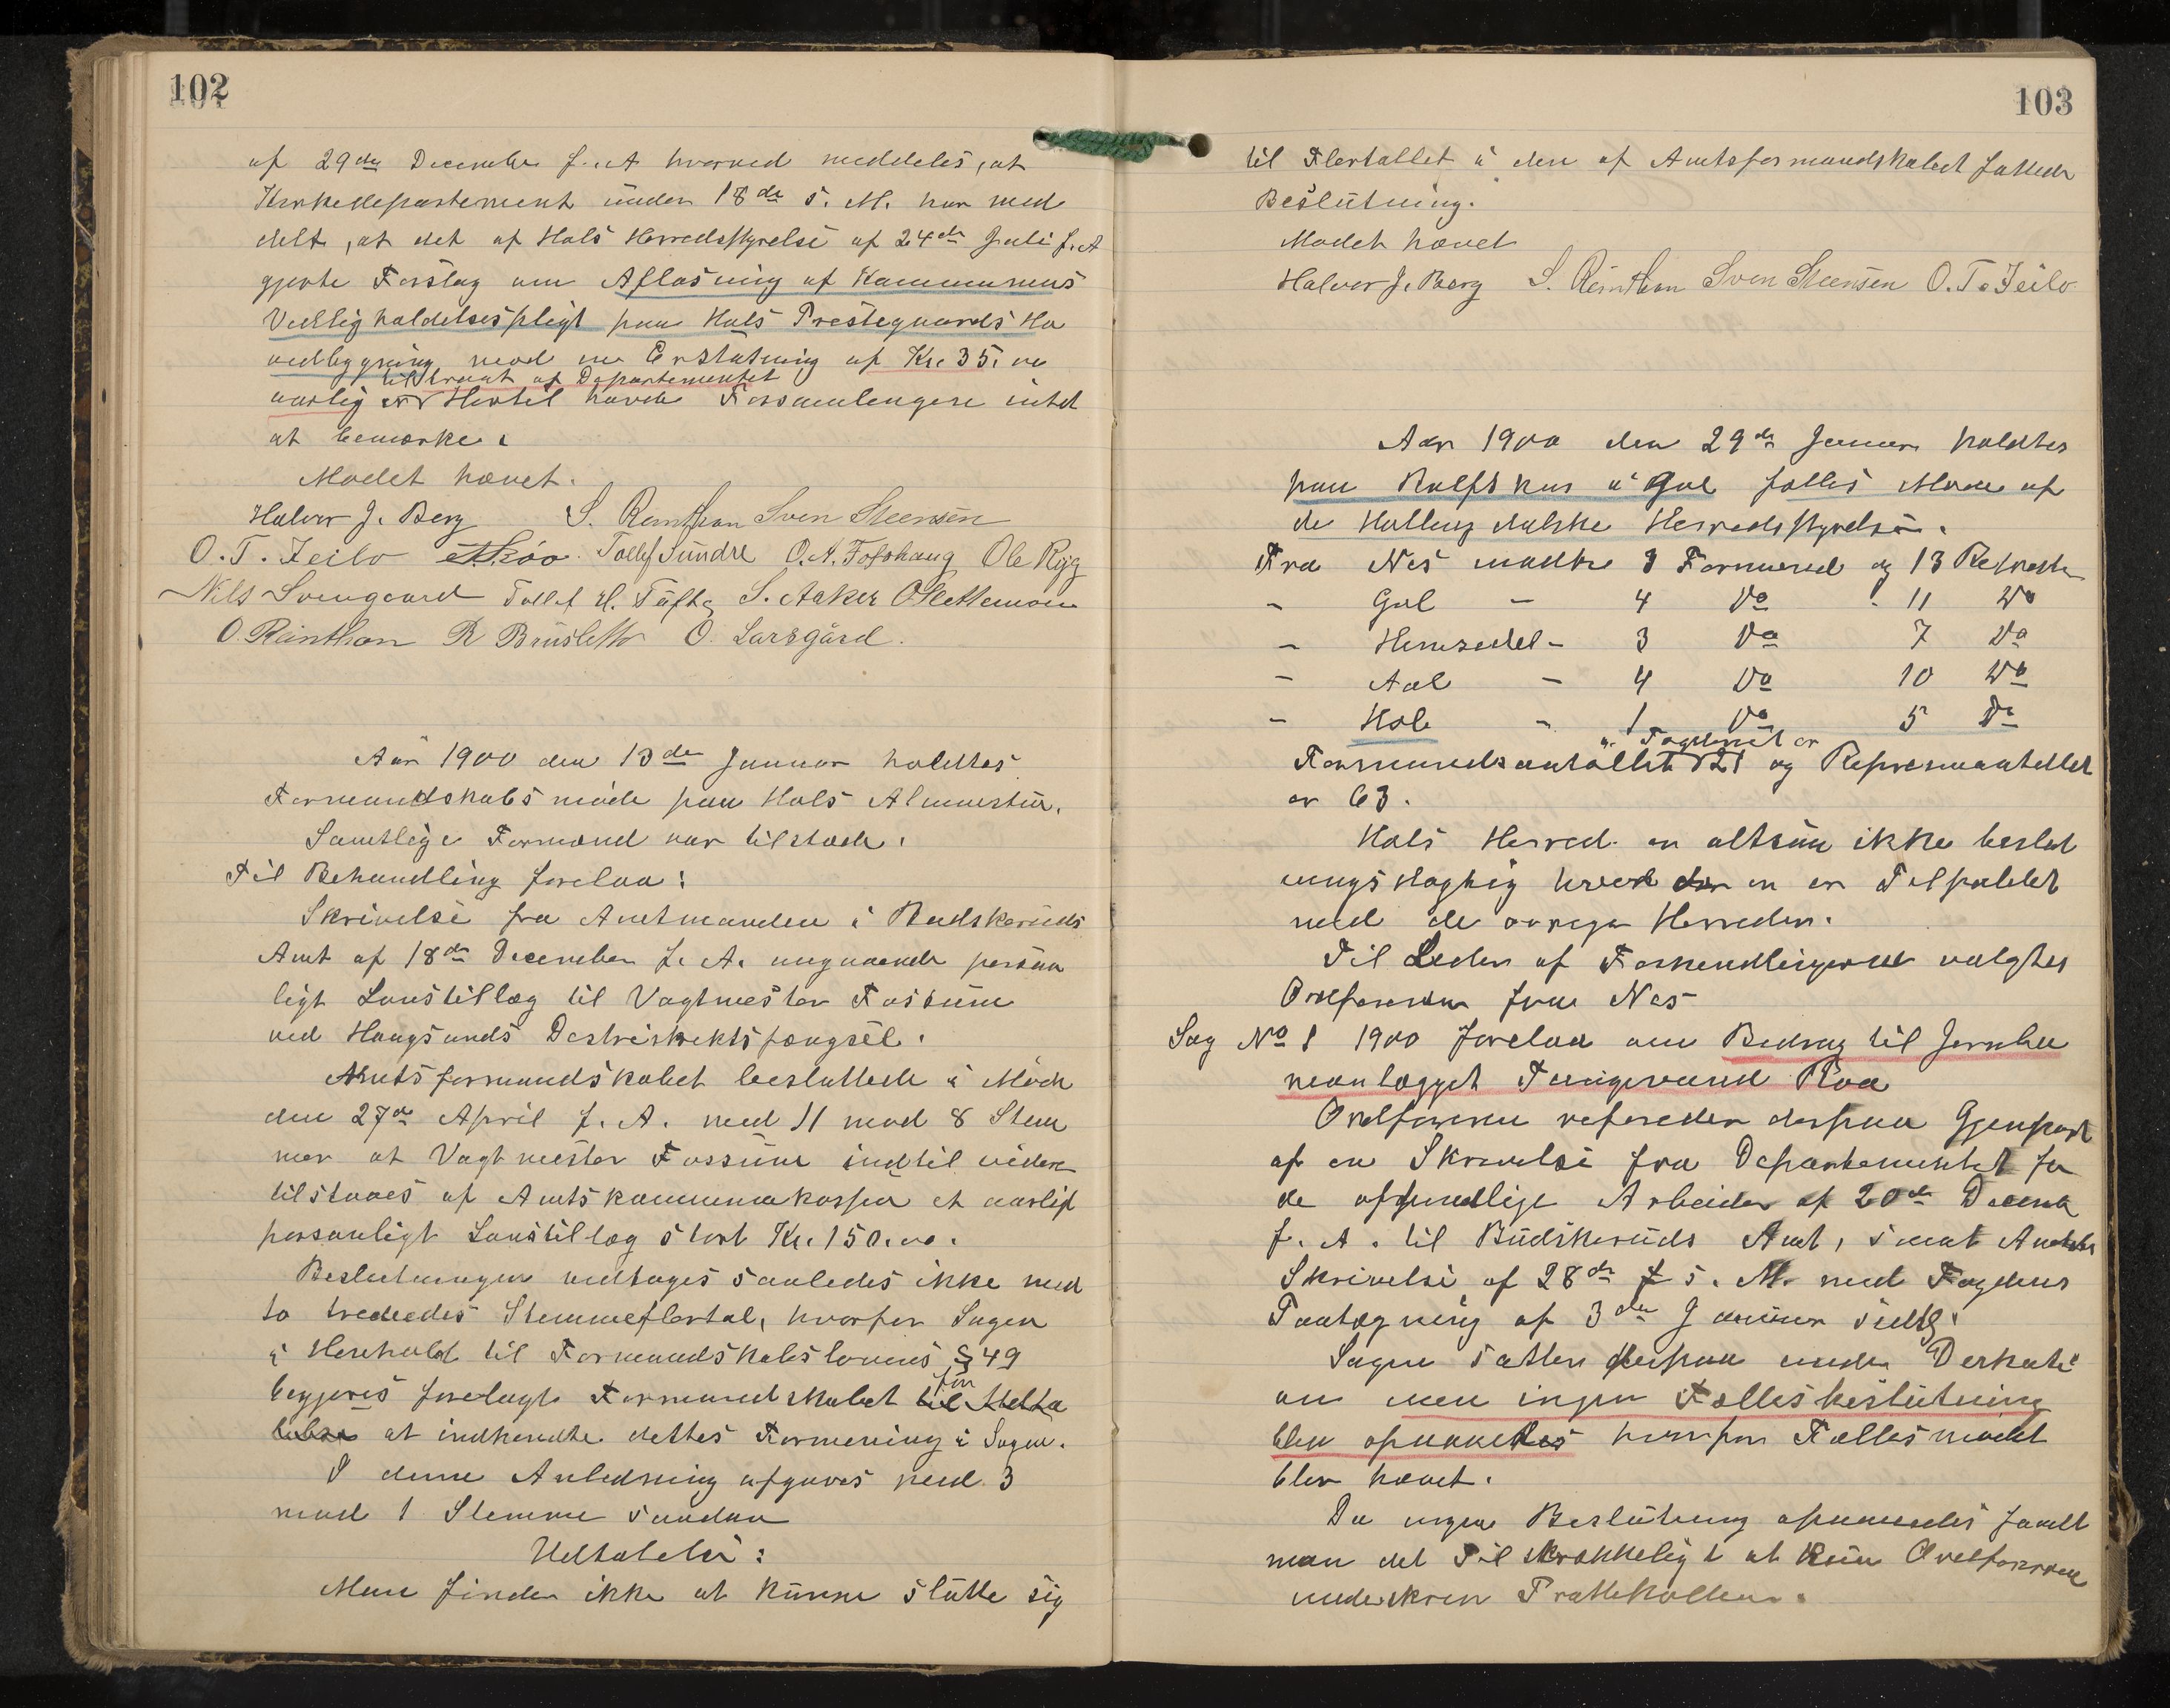 102
af 29de December f. A hvorved meddeles, at
Kirkedepartement under 18de s. M. har med
delt, at det af Hols Herredsstyrelse af 24de Juli f. A
gjorte Forslag om Afløsning af Kommunens
Vedligholdelsespligt paa Hols Prestegaards Ho
vedbygning mod en Erstatning af Kr. 35.00
tiltraat af Departementet
aarlig er Hertil havde Forsamlingen intet
at bemærke.
Mødet hævet.
Halvor J. Berg S. Reinthon Sven Steensen
O. T. Jeilo Tollef Sundre O. A. Fosshaug Ole Rygg
Nils Svengaard Tollef H. Tufte S. Aaker O Slettemoen
O. Reinthon R Brusletto O. Larsgård.
Aar 1900 den 13de Januar holdtes
Formandskabsmøde paa Hols Almuestue.
Samtlige Formænd var tilstede.
Til Behandling forelaa:
Skrivelse fra Amtmanden i Buskeruds
Amt af 18de December f. A. angaaende person
ligt Lønstillæg til Vagtmester Fossum
ved Haugsunds Destriskektsfængsel.
Amtsformandskabet besluttede i Møde
den 27de April f. A. med 11 mod 8 Stem
mer at Vagtmester Fossum indtil videre
tilstaaes af Amtskommunekassen et aarligt
personligt Lønstillæg stort Kr. 150.00.
Beslutningen vedtoges saaledes ikke med
to trediedels Stemmeflertal, hvorfor Sagen
i Henhold til Formandskabslovens § 49
for
begjæres forelagt Formandskabet til
at indhendte dettes Formening i Sagen.
I denne Anledning afgaves med 3
mod 1 Stemme saadan
Udtalelse:
Man finder ikke at kunne slutte sig
103
til Flertallet i den af Amtsformandskabet fattede
Beslutning.
Mødet hævet
Halvor J. Berg S. Reinthon Sven Steensen O. T. Jeilo
Aar 1900 den 29de Januar holdtes
paa Rolfshus i Gol fælles Møde af
de Hallingdalske Herredsstyrelser.
Fra Nes mødte 9 Formænd og 13 Represtr
- Gol - 4 Do - 11 Do
- Hemsedal - 3 Do 7 Do
- Aal - 4 Do 10 Do
- Hol - 1 Do 5 Do
i Fogderiet er
Formændsantallet 21 og Represmantallet
er 63.
Hols Herred er altsaa ikke beslut
ningsdygtig hvad der er er Tilfældet
med de øvrige Herreder.
Til Leder af Forhandlingerne valgtes
Ordføreren fra Nes
Sag No 1 1900 Forelaa om Bidrag til Jernba
neanlægget Tungevand Roa
Ordføreren refererer derpaa Gjenpart
af en Skrivelse fra Departementet for
de offentlige Arbeider af 20de Decemb
f. A. til Buskeruds Amt, samt Amtets
Skrivelse af 28de s. M. med Fogdens
Paategning af 3de Januar sidtl.
Sagen sattes derpaa under Diskusi
on men ingen Fællesbeslutning
blev opnaaedes hvorfor Fællesmødet
blev hævet.
Da ingen Beslutning opnaaedes fandt
man det Tilstrækkeligt at kun Ordføreren
underskrev Prottekollen.